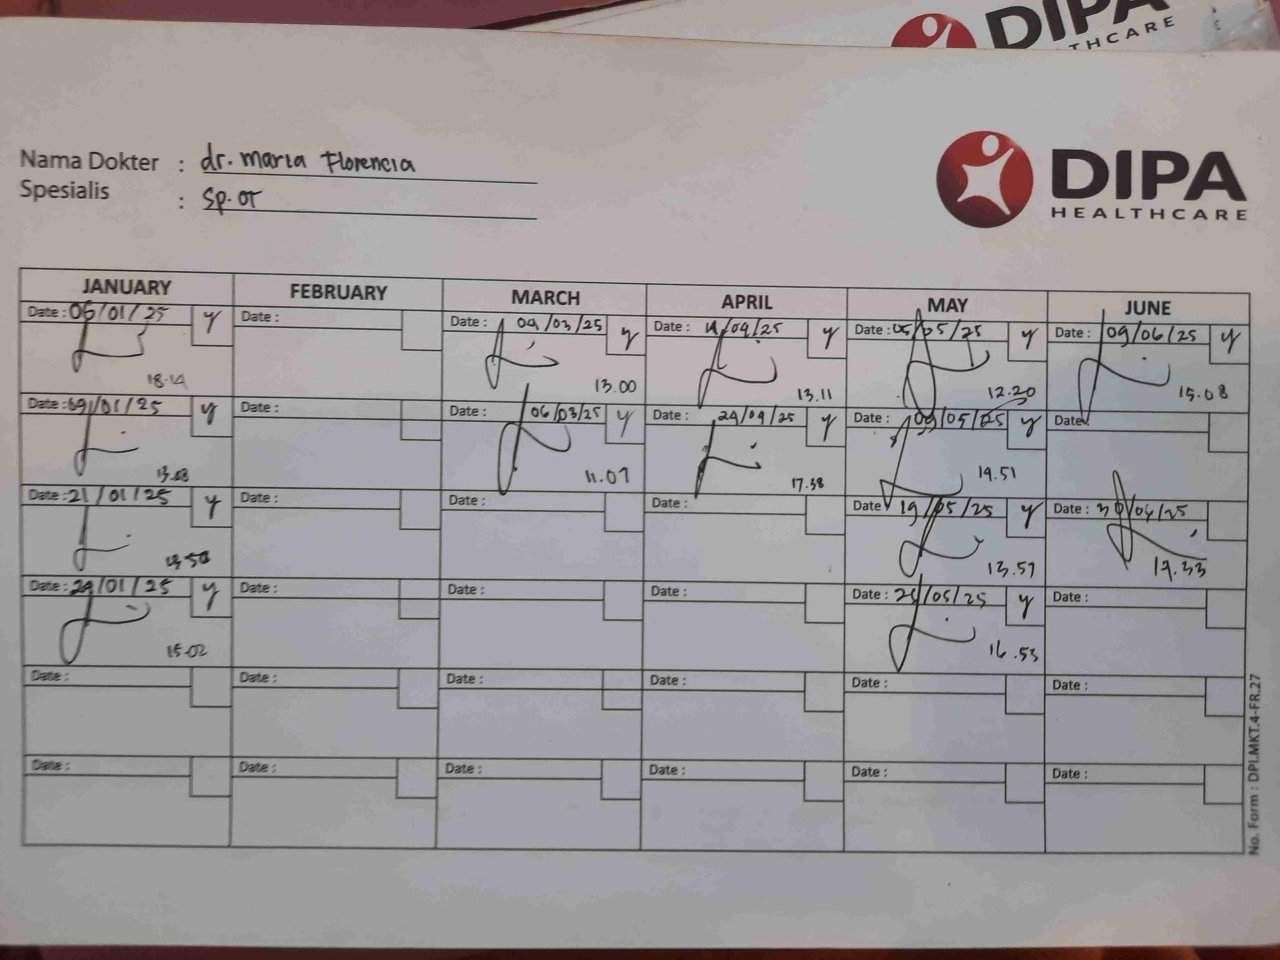 DIPA
THCARE
Nama Dokter : dr. Maria Florencia
Spesialis : Sp. OT
DIPA
HEALTHCARE
JANUARY FEBRUARY MARCH APRIL MAY JUNE
Date : 06/01/25 y Date : Date : 09/03/25 y Date : /25 y Date : 05/05/25 y Date : 09/06/25 y
13.00 13.11 12.20 15.08
Date : 09/01/25 y Date : Date : 06/03/25 y Date : 29/04/25 y Date : 09/05/25 y Date
11.07 17.38 19.51
Date : 21/01/25 y Date : Date : Date : Date 19/05/25 y Date :
13.57 19.33
Date : 29/01/25 y Date : Date : Date : Date : /05/25 y Date :
15.02 16.53
Date : Date : Date : Date : Date : Date :
Date : Date : Date : Date : Date : Date :
No. Form : DPI.MKT.4-FR.27